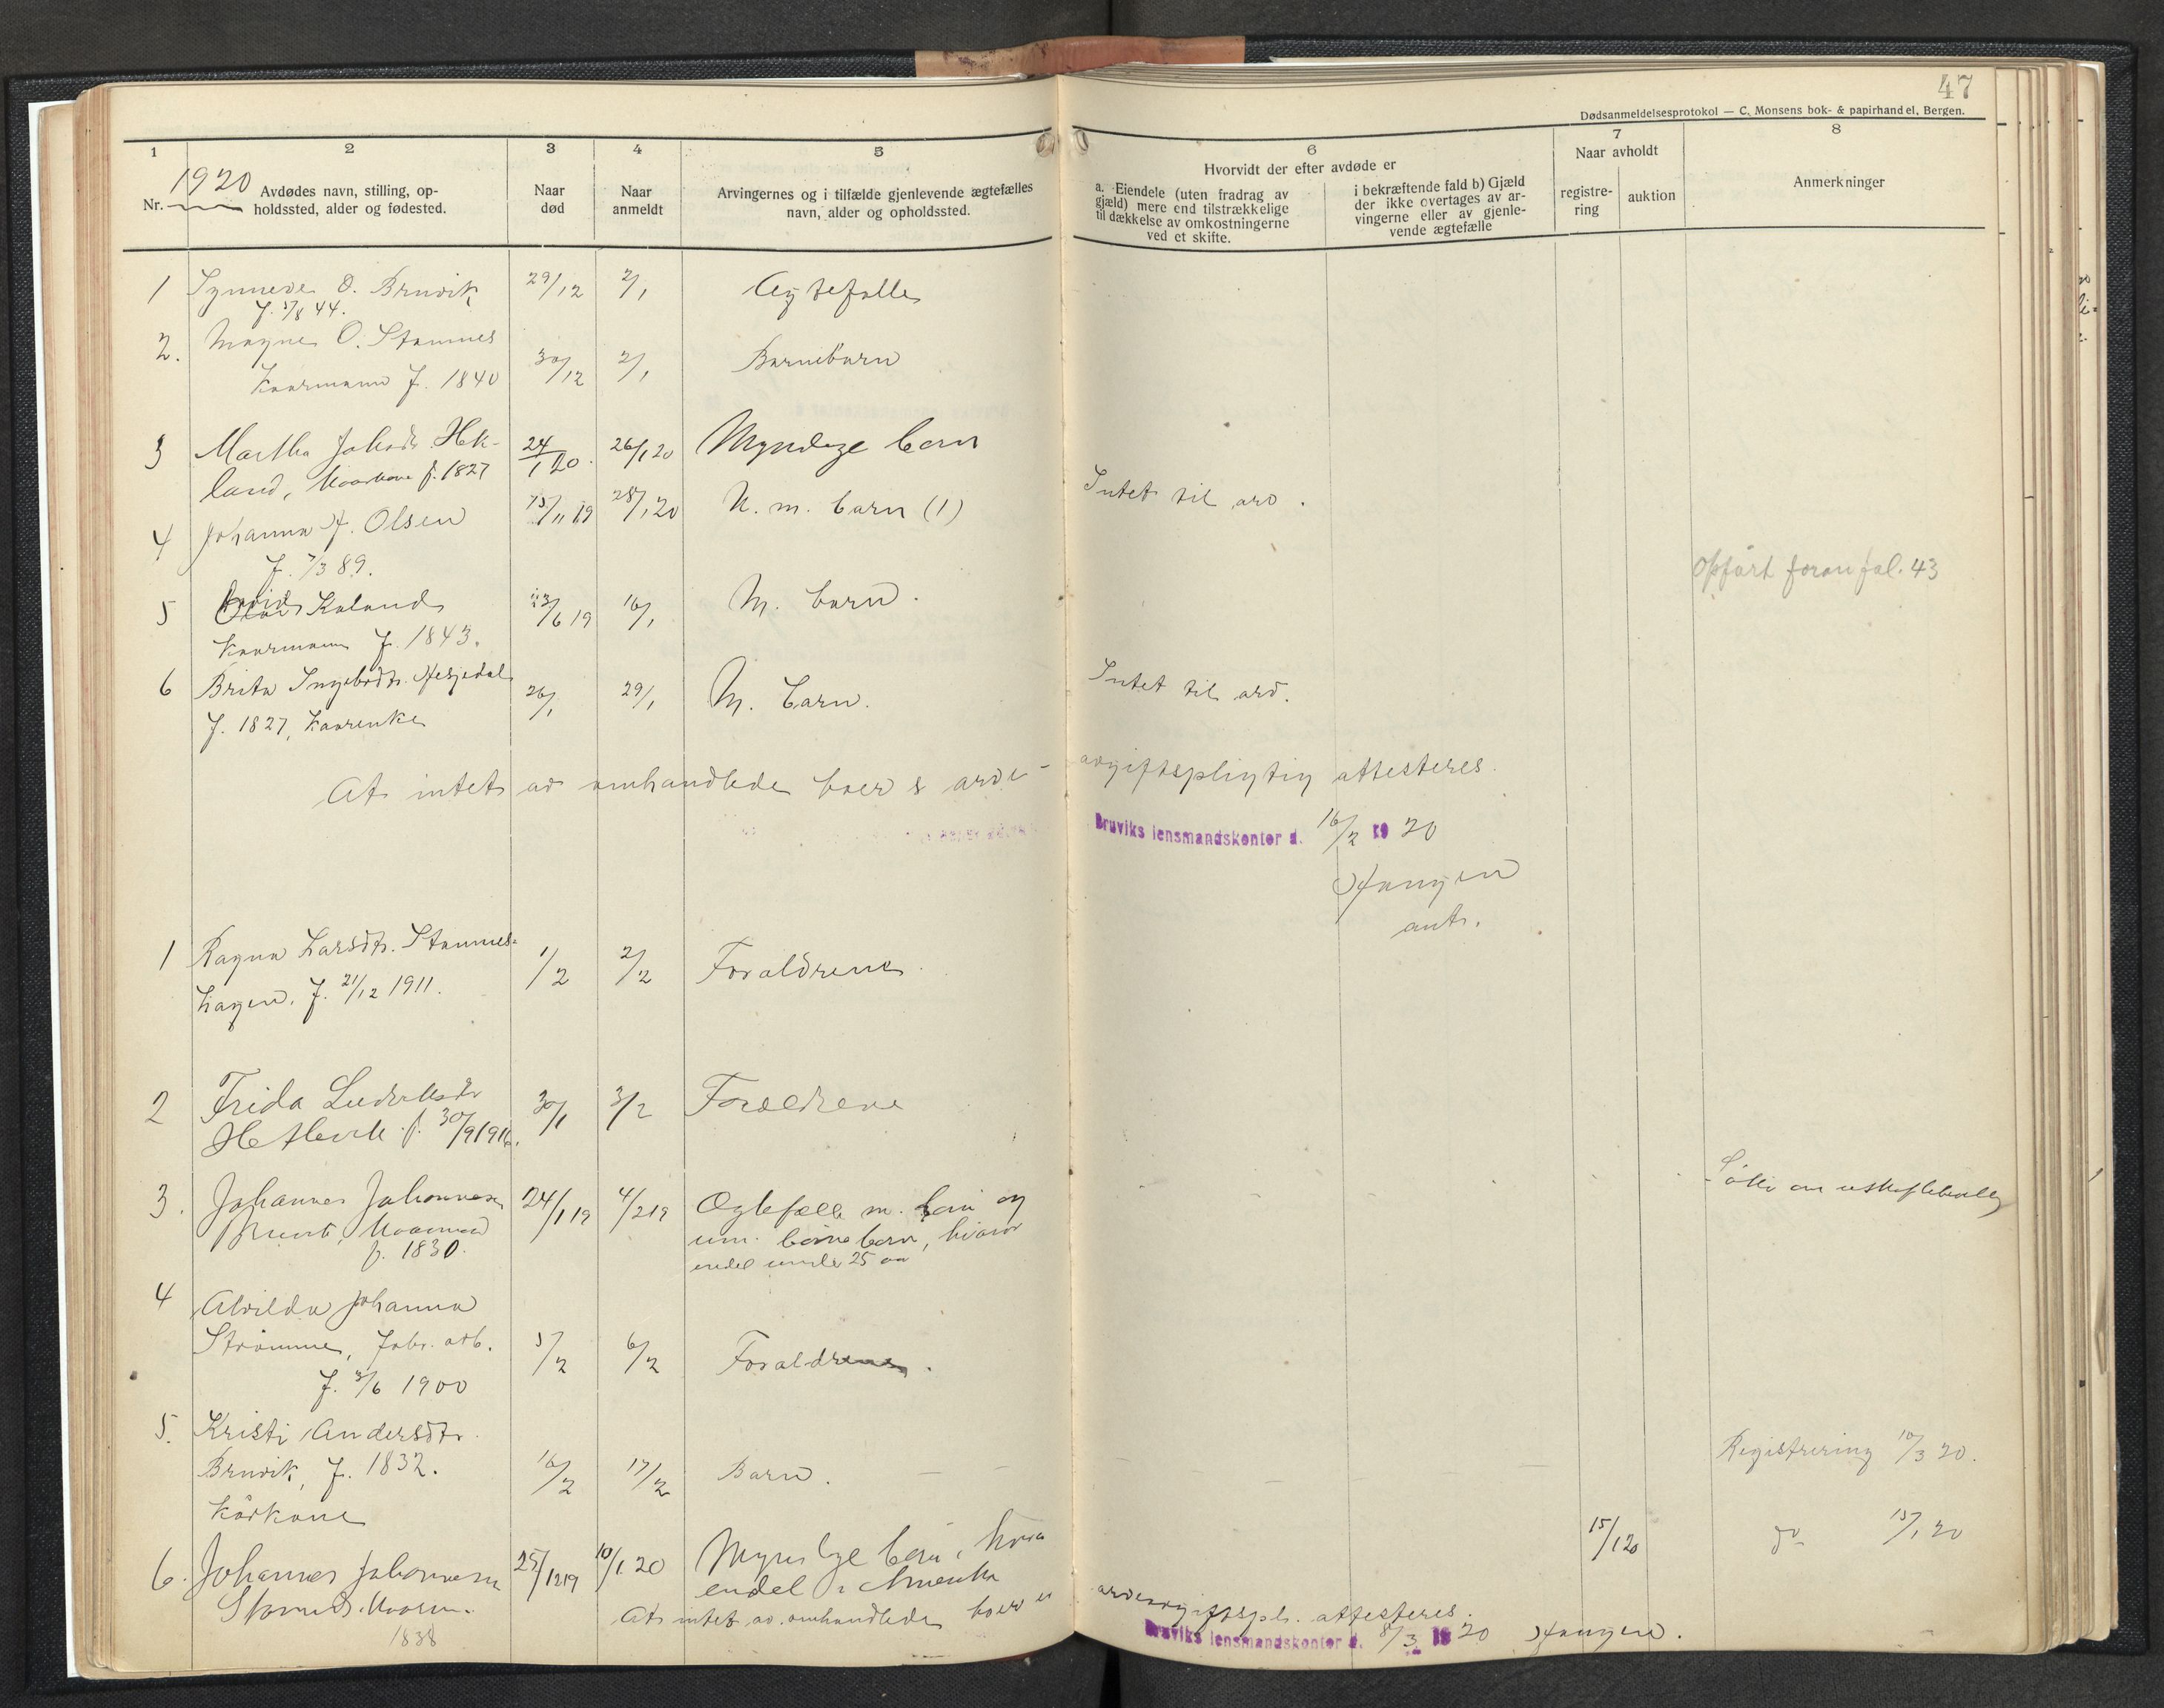 47
Dødsanmeldelsesprotokol — C. Monsens bok- & papirhandel, Bergen.
1
2
3
4
5
6
7
8
1920
Nr.
Avdødes navn, stilling, op-
holdssted, alder og fødested.
Naar
død
Naar
anmeldt
Arvingernes og i tilfælde gjenlevende ægtefælles
navn, alder og opholdssted.
Hvorvidt der efter avdøde er
a. Eiendele (uten fradrag av
gjæld) mere end tilstrækkelige
til dækkelse av omkostningerne
ved et skifte.
i bekræftende fald b) Gjæld
der ikke overtages av ar-
vingerne eller av gjenle-
vende ægtefælle
Naar avholdt
registre-
ring
auktion
Anmerkninger
1 Synneve O. Bruvik 29/12 2/1 Egtefelle
f. 44.
2. Magne O. Stamnes
Kaarmann f. 1840 30/12 2/1 Barnebarn
3 Martha Johsdr. Hek-
land, Kaarkone f. 1827 24/1 20. 26/1 20 Myndige børn
4 Johanna J. Olsen 15/11 19 28/1 20 U. m. barn (1) Intet til arv.
f. 7/3 89.
Opført foran fol. 43
5 Kaland 6 19 16/1 M. barn.
Kaarmann f. 1843.
6 Brita Ingebrdtr. Hesjedal 26/1 29/1 M. barn. Intet til arv.
f. 1827, Kaarenke
At intet av omhandlede boer er arve-avgiftspligtig attesteres.
Bruviks lensmandskontor d. 16/2 19 20
Stangen
1 Ragna Larsdtr. Stamnes-
hagen. f. 21/12 1911. 1/2 2/2 Forældrene.
2 Frida Ludviksdr
f. 30/9 1916. 30/1 3/2 Forældrene
3. Johannes Johannesen 24/1 19 4/2 19 Egtefelle m. børn og
Kaarmand um. børnebarn, hvorav
f. 1830. endel under 25 aar
4 Alvilda Johanna
Strømme, fabr. arb. 5/2 6/2 Forældrene.
f. 3/6 1900
5. Kristi Andersdtr.
Bruvik, f. 1832. 16/2 17/2 Barn. Registrering 10/3 20.
Kårkone
6. Johannes Johannesen 25/12 19 10/1 20 Myndige børn, hvorav 15/1 20 do 15/1 20
Kaarm. endel i Amerika
1838
At intet av omhandlede boer er arveavgiftspl. attesteres.
Bruviks lensmandskontor d. 8/3 19 20 Stangen.